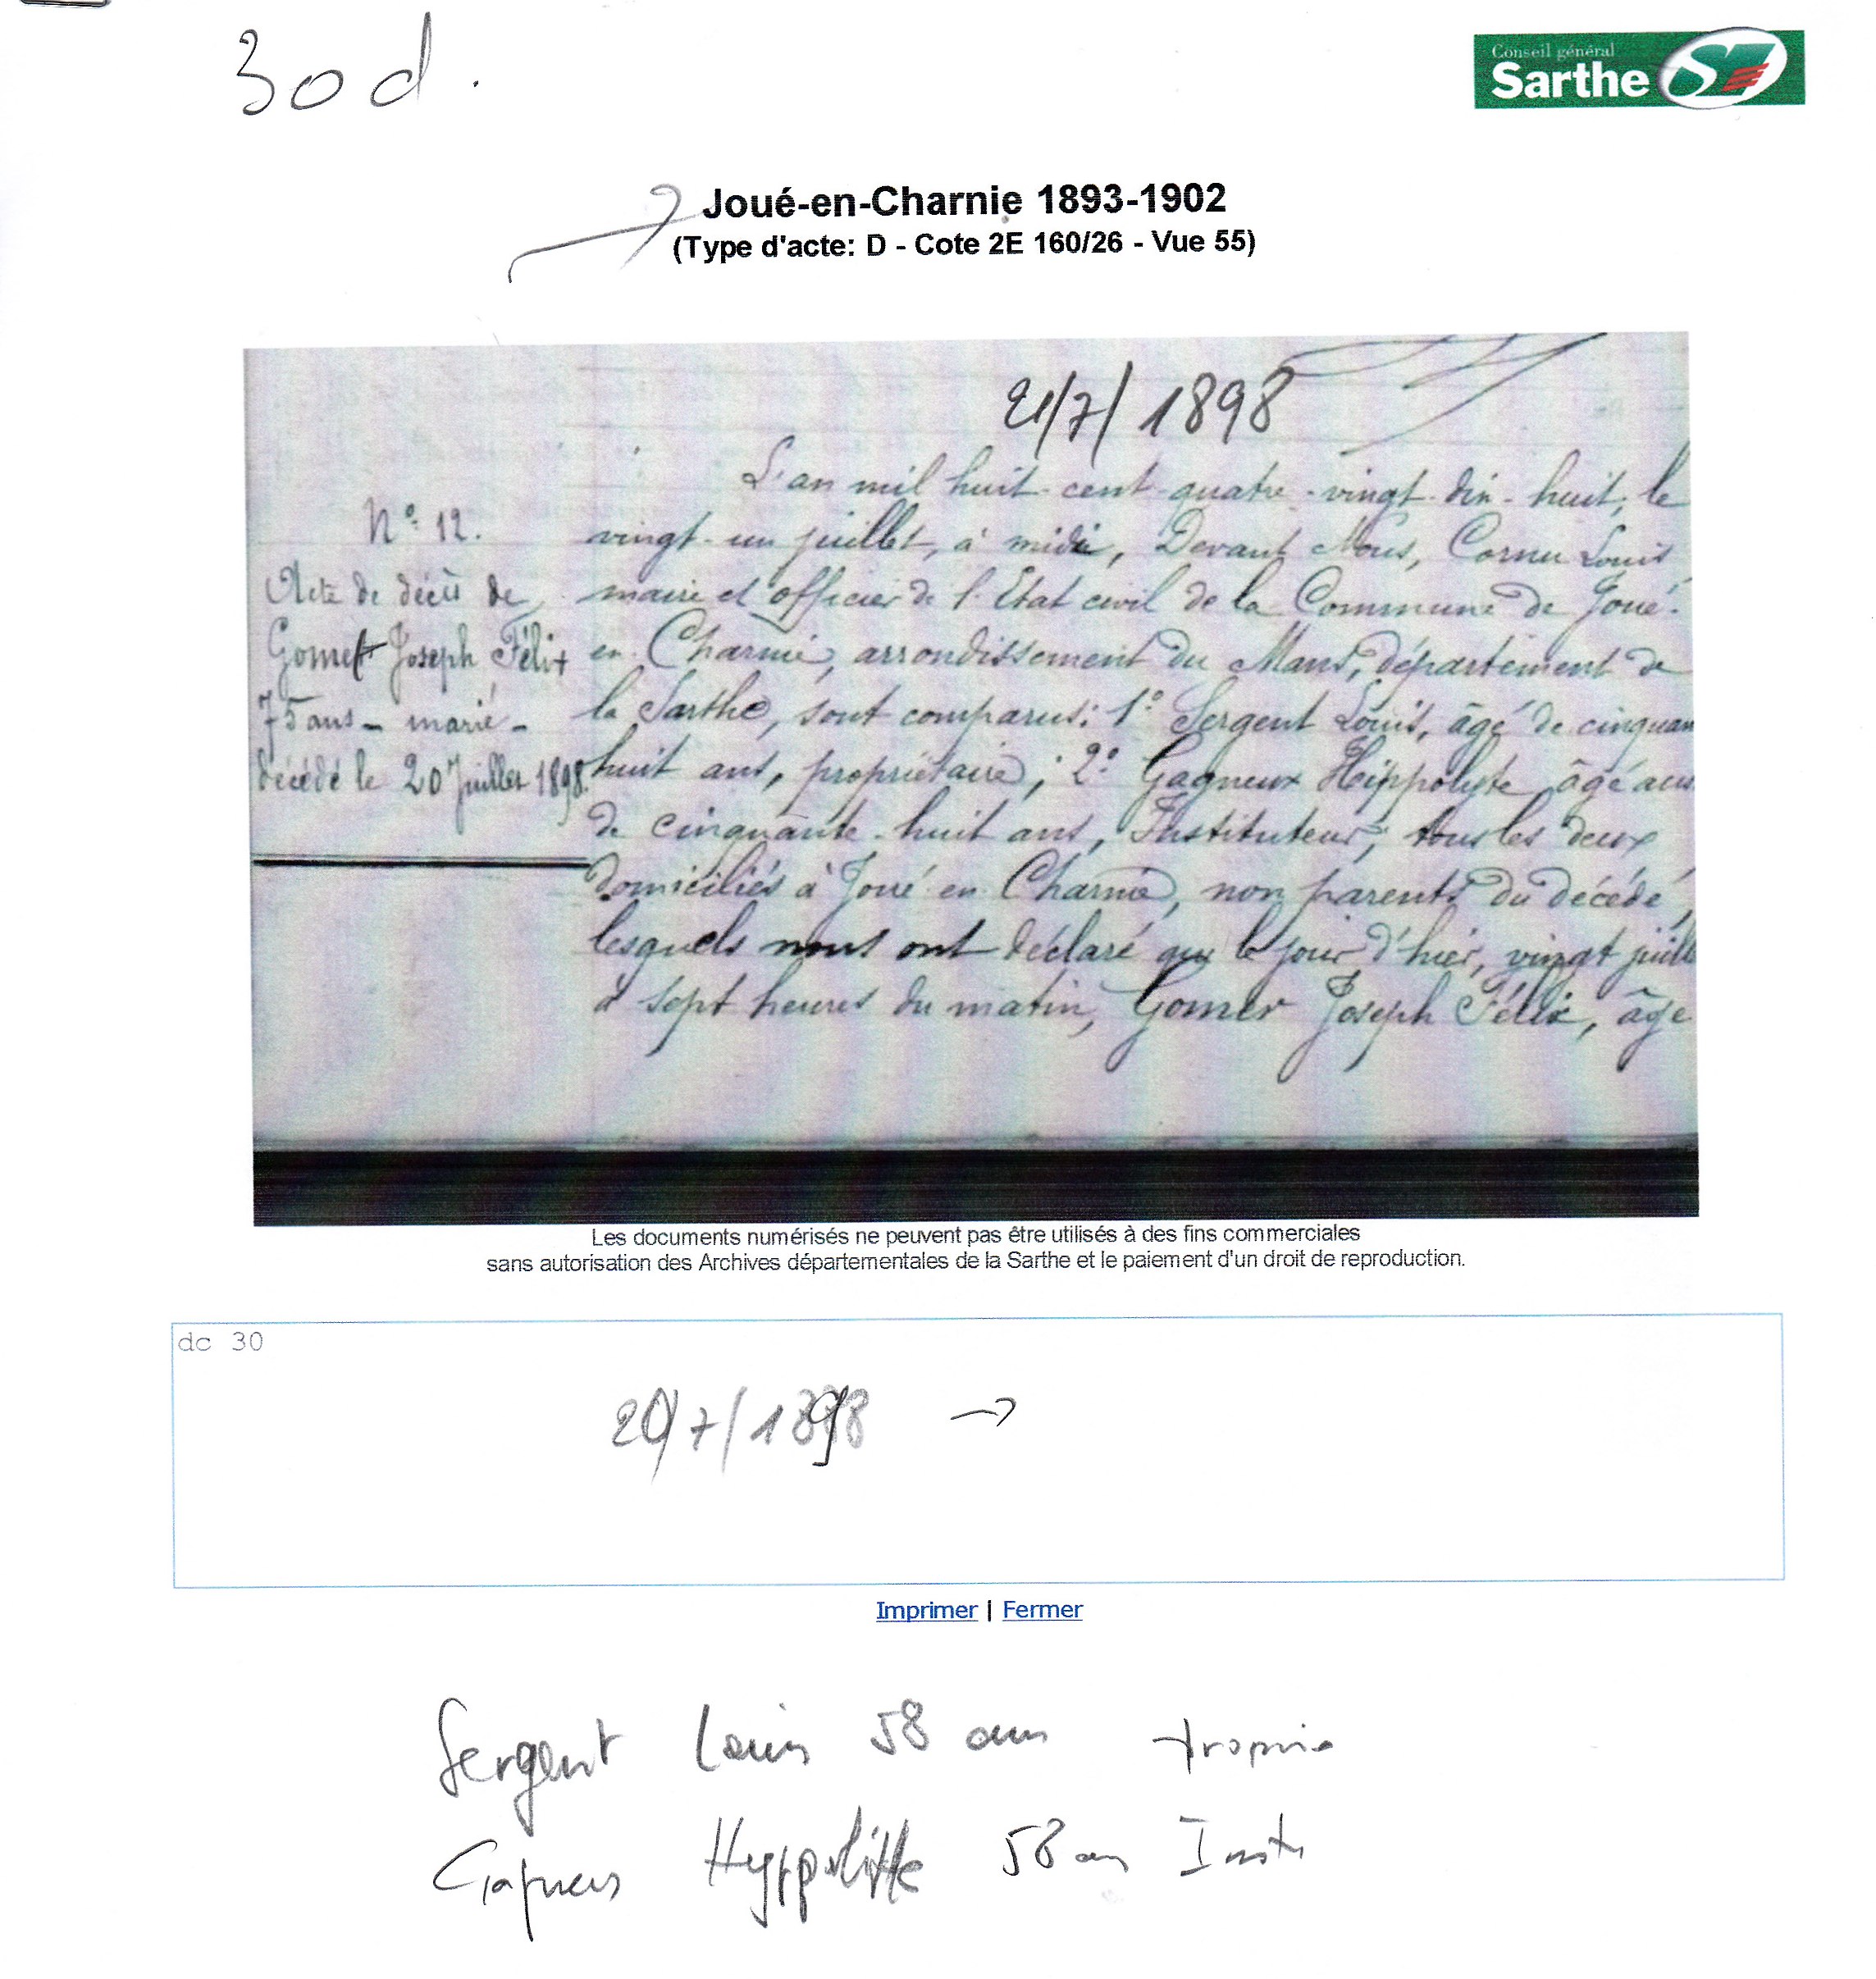 30 d.
Conseil général
Sarthe
Joué-en-Charnie 1893-1902
(Type d'acte: D - Cote 2E 160/26 - Vue 55)
21/7/1898
N° 12.
Acte de décès de
Gomer Joseph Félix
75 ans - marié -
décédé le 20 Juillet 1898.
L'an mil huit-cent-quatre-vingt-dix-huit, le
vingt-un juillet, à midi, Devant Nous, Cornu Louis
maire et officier de l'Etat civil de la Commune de Joué-
en-Charnie, arrondissement du Mans, département de
la Sarthe, sont comparus: 1° Sergent Louis, âgé de cinquan
huit ans, propriétaire; 2° Gagneux Hippolyte âgé aus
de cinquante-huit ans, Instituteur, tous les deux
domiciliés à Joué-en-Charnie, non parents du décédé,
lesquels nous ont déclaré que le jour d'hier, vingt juill
à sept heures du matin, Gomer Joseph Félix, âgé
Les documents numérisés ne peuvent pas être utilisés à des fins commerciales
sans autorisation des Archives départementales de la Sarthe et le paiement d'un droit de reproduction.
dc 30
20/7/1898 →
Imprimer | Fermer
Sergent Louis 58 ans proprie
Hyppolitte 58 an Insti